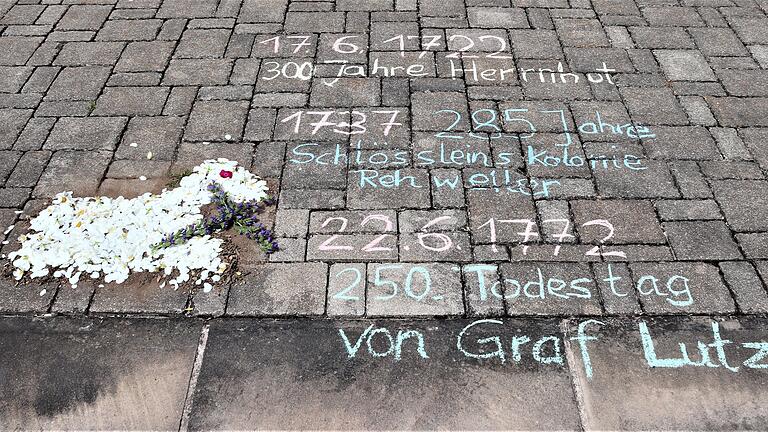 17. 6. 1722
300 Jahre Herrnhut
1737 285 Jahre
Schlösslein's Kolonie
Rehweiler
22.6.1772
250. Todestag
von Graf Lutz